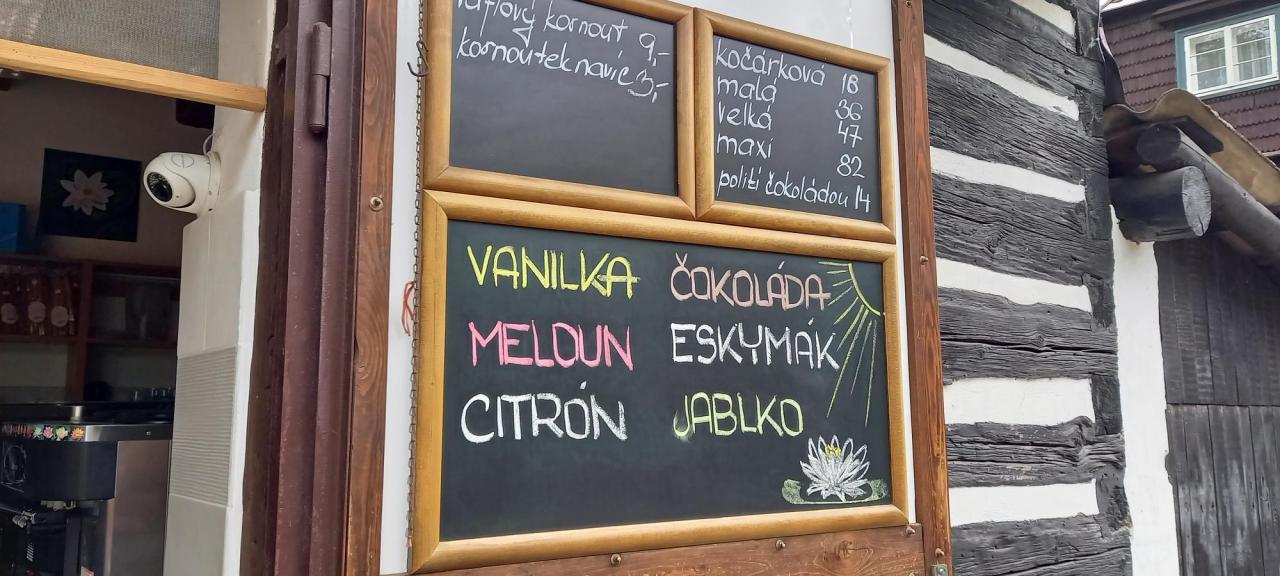 kornout 9,-
kornoutek navíc 3,-
kočárková 18
malá 36
velká 47
maxi 82
politi čokoládou 14
VANILKA ČOKOLÁDA
MELOUN ESKYMÁK
CITRÓN JABLKO